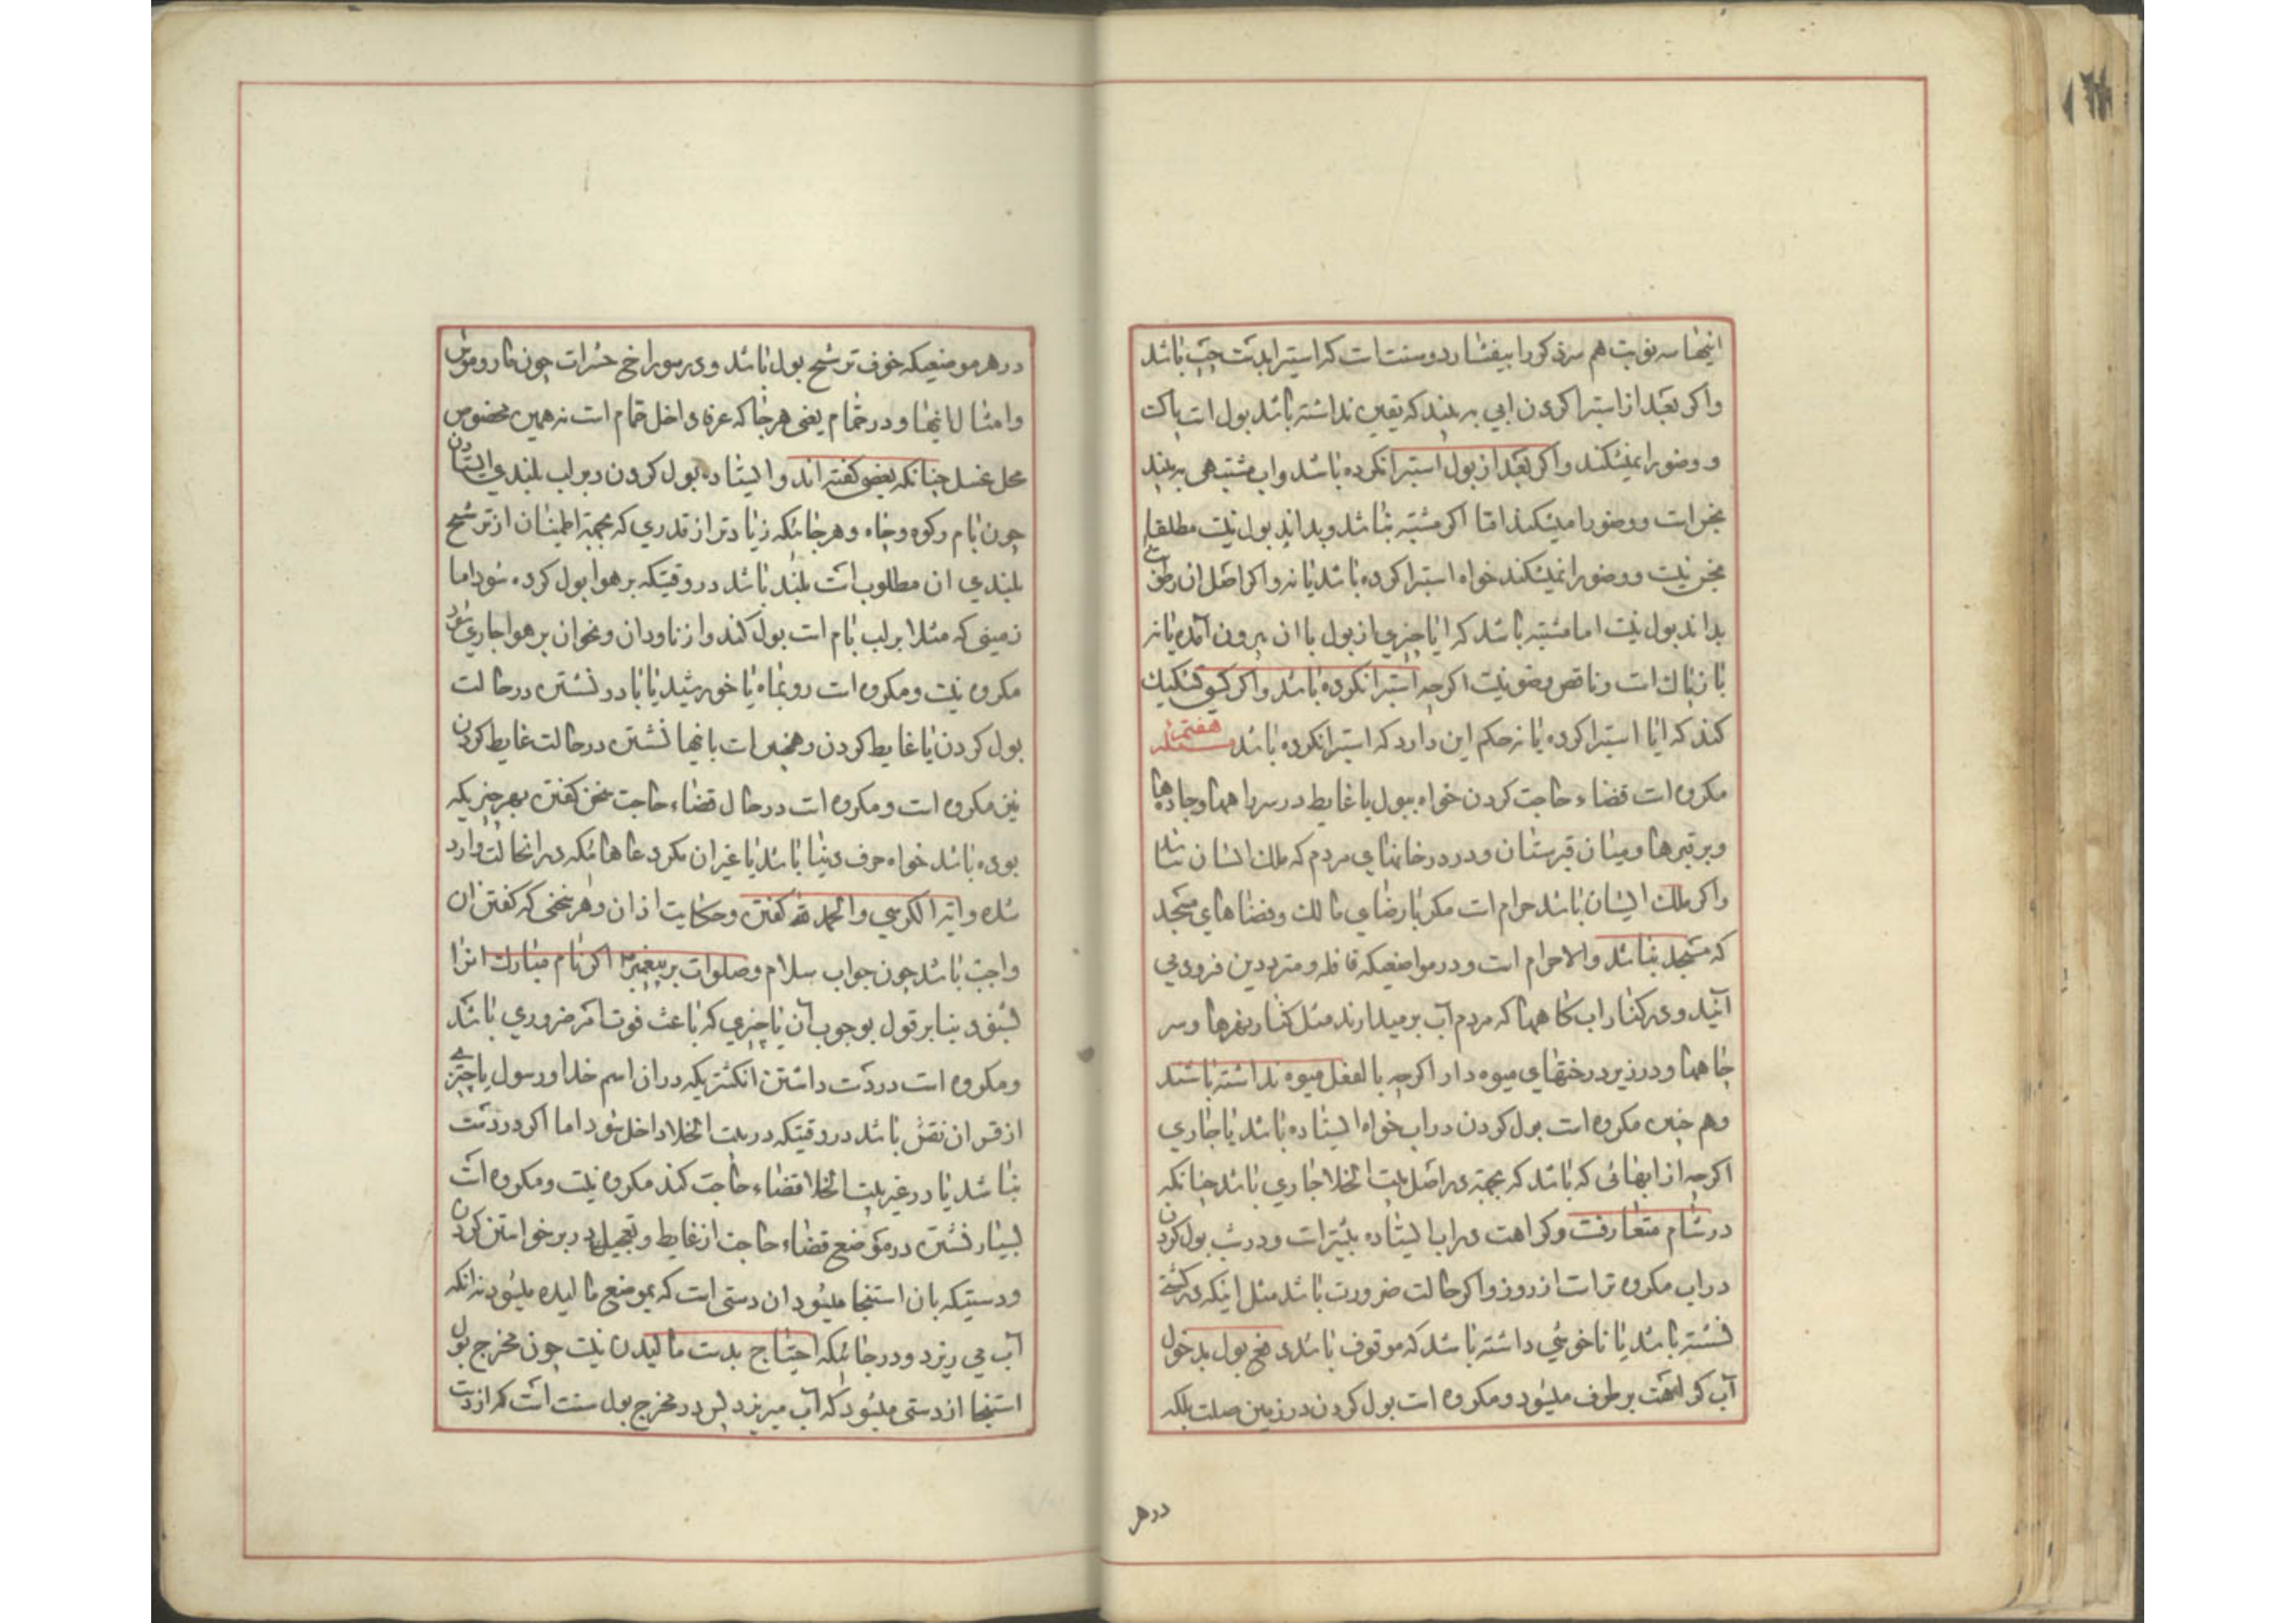 اینها سه نوبت هم سر ذکر را بیفشارد و سنت است که استبرا بدست چپ باشد
واکر بعد از استبرا کردن ابی به بیند که یقین نداشته باشد بول است پاکست
و وضو را نمیشکند واکر بعد از بول استبرا نکرده باشد واب مشتبهی به بیند
نجس است و وضو را میشکند اما اکر مشتبه نباشد و بداند بول نیست مطلقا
نجس نیست و وضو را نمیشکند خواه استبرا کرده باشد یا نه واکر اصل ان رطوبت
بداند بول نیست اما مشتبه باشد که ایا چیزی از بول با ان بیرون آمده یا نه
باز پاک است و ناقض وضو نیست اکرچه استبرا نکرده باشد واکر کسی تشکیک
کند که ایا استبرا کرده یا نه حکم این دارد که استبرا نکرده باشد مسئله هفتم
مکروه است قضاء حاجت کردن خواه ببول یا غایط در سر راهها وجادها
وبر قبرها ومیان قبرستان ودر در خانهای مردم که ملک ایشان نباشد
واکر ملک ایشان باشد حرام است مکر با رضای مالک وفضاهای مسجد
که مسجد نباشد والا حرام است ودر مواضعیکه قافله و مترددین فرود می
آیند ودر کنار اب کاهها که مردم آب بر میدارند مثل کنار نهرها وسر
چاهها ودر زیر درختهای میوه دار اکرچه بالفعل میوه نداشته باشند
وهم چنین مکروه است بول کردن در اب خواه ایستاده باشد یا جاری
اکرچه از ابهائی که باشد که بجهة در اصل بیت الخلا جاری باشد چنانکه
در شام متعارفست وکراهت در اب ایستاده بیشتر است ودر شب بول کردن
در اب مکروه تر است از روز واکر حالت ضرورت باشد مثل اینکه در کشتی
نشسته باشد یا ناخوشی داشته باشد که موقوف باشد دفع بول بدخول
آب کراهت بر طرف میشود ومکروه است بول کردن در زمین صلب بلکه
در هر
در هر موضعیکه خوف ترشح بول باشد ودر سوراخ حشرات چون مار وموش
وامثال اینها ودر حمام یعنی هر جا که عرفا داخل حمام است نه همین مخصوص
محل غسل چنانکه بعضی کفته اند وایستاده بول کردن و بر لب بلندی ایستادن
چون بام وکوه وچاه وهر جائیکه زیادتر از قدری که بجهة اطمینان از ترشح
بلندی ان مطلوبست بلند باشد در وقتیکه بر هوا بول کرده شود اما
زمینی که مثلا بر لب بام است بول کند واز ناودان ونحوان بر هوا جاری شود
مکروه نیست ومکروه است رو بماه یا خورشید یا باد نشستن در حالت
بول کردن یا غایط کردن وهمچنین است باینها نشستن در حالت غایط کردن
نیز مکروه است ومکروه است در حال قضاء حاجت سخن کفتن بهر چیزیکه
بوده باشد خواه حرف دنیا باشد یا غیر ان مکر دعاهائیکه در انحالت وارد
شده وایة الکرسی والحمد لله کفتن وحکایت اذان وهر سخنی که کفتن ان
واجب باشد چون جواب سلام وصلوات بر پیغمبر ص اکر نام مبارک انرا
بشنود بنا بر قول بوجوب آن یا چیزی که باعث فوت امر ضروری باشد
ومکروه است در دست داشتن انکشتریکه در ان اسم خدا ورسول یا چیزی
از قران نقش باشد در وقتیکه در بیت الخلا داخل شود اما اکر در دست
نباشد یا در غیر بیت الخلا قضاء حاجت کند مکروه نیست ومکروه است
بسیار نشستن در موضع قضاء حاجت از غایط وتعجیل در برخواستن کردن
ودستیکه بان استنجا میشود ان دستی است که بموضع مالیده میشود نه انکه
آب می ریزد ودر جائیکه احتیاج بدست مالیدن نیست چون مخرج بول
استنجا از دستی میشود که آب میریزد پس در مخرج بول سنت است که از دست